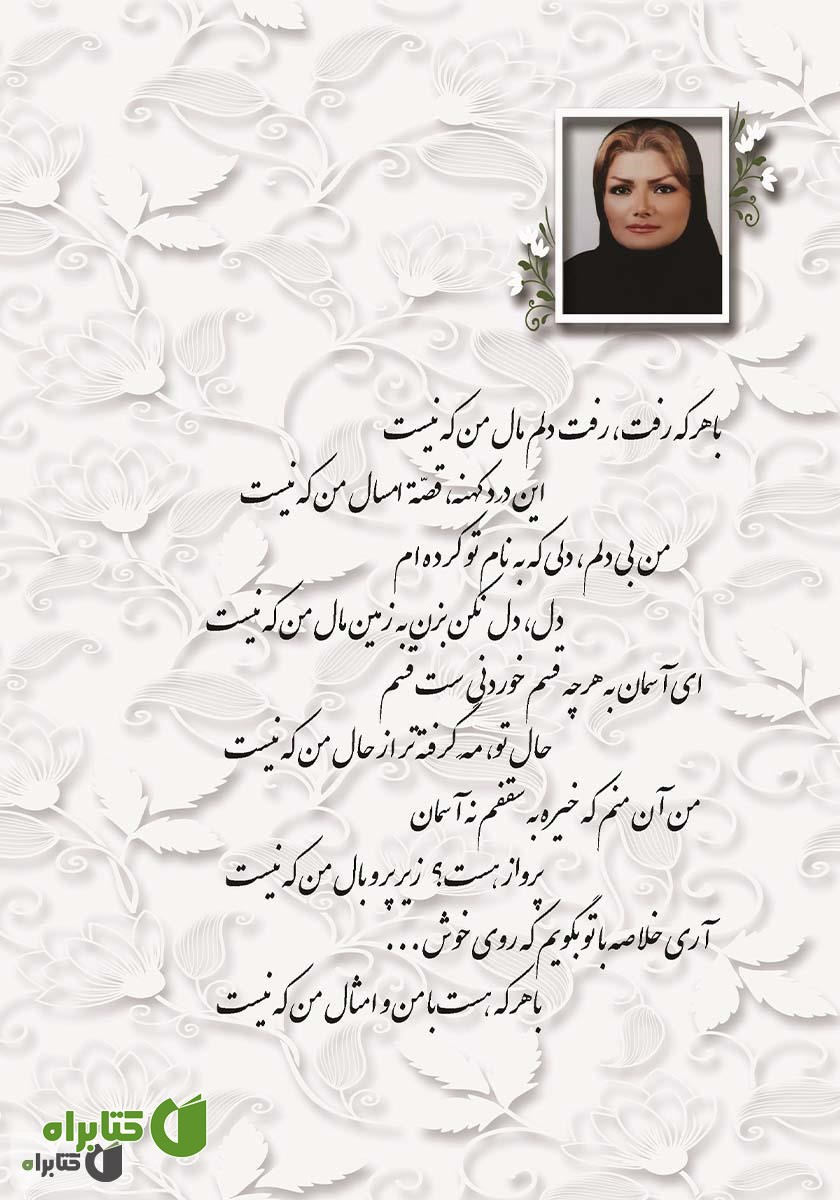 با هر که رفت، رفت دلم مال من که نیست
این درد کهنه، قصّۀ امسال من که نیست
من بی دلم، دلی که به نام تو کرده ام
دل، دل نکن بزن به زمین مال من که نیست
ای آسمان به هرچه قسم خوردنی ست قسم
حال تو، مه گرفته تر از حال من که نیست
من آن منم که خیره به سقفم نه آسمان
پرواز هست؟ زیر پر و بال من که نیست
آری خلاصه با تو بگویم که روی خوش...
با هر که هست با من و امثال من که نیست
کتابراه
کتابراه